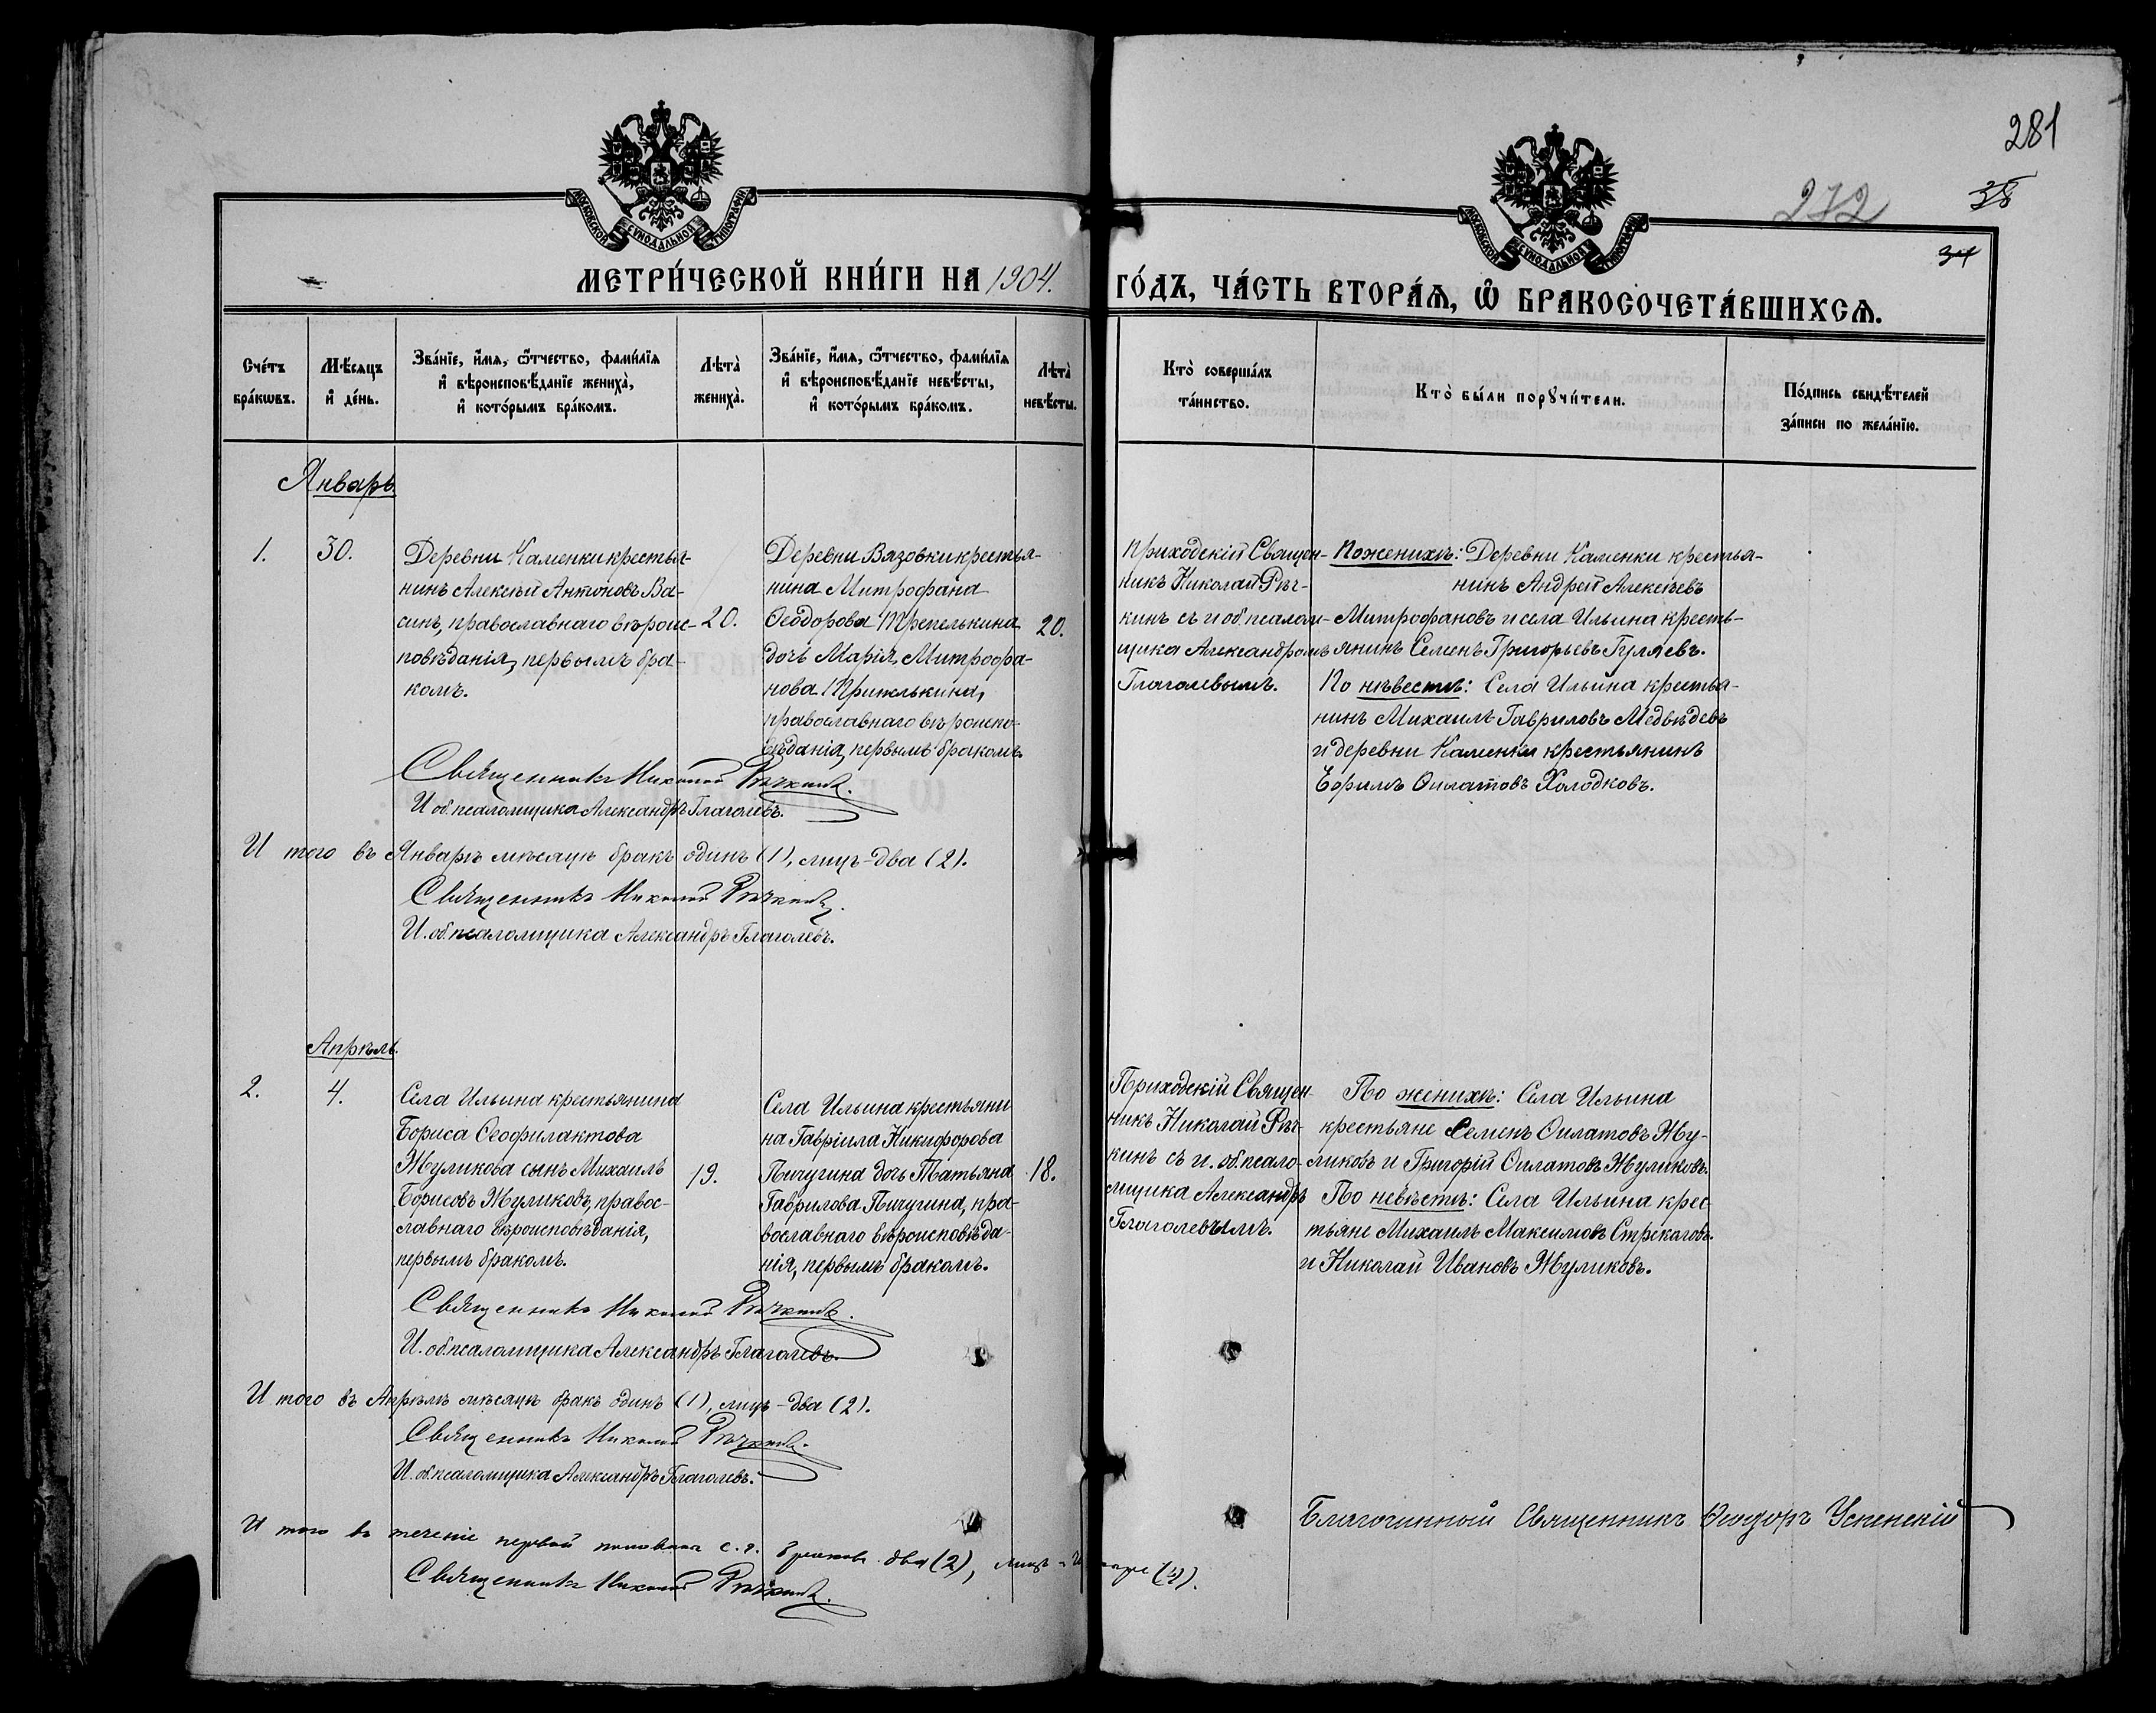 281
272
38
34
МОСКОВСКОЙ СѴНОДАЛЬНОЙ ТИПОГРАФІИ
МОСКОВСКОЙ СѴНОДАЛЬНОЙ ТИПОГРАФІИ
МЕТРИ́ЧЕСКОЙ КНИ́ГИ НА 1904.
ГО́ДЪ, ЧА́СТЬ ВТОРА́Ѧ, Ѽ БРАКОСОЧЕТА́ВШИХСѦ.
Сче́тъ
бра́кѡвъ.
Мѣ́сяцъ
и҆ де́нь.
Зва́нїе, и҆́мѧ, ѻ҆́тчество, фами́лїѧ
и҆ вѣроисповѣ́данїе жениха̀,
и҆ кото́рымъ бра́комъ.
Лѣта̀
жениха̀.
Зва́нїе, и҆́мѧ, ѻ҆́тчество, фами́лїѧ
и҆ вѣроисповѣ́данїе невѣ́сты,
и҆ кото́рымъ бра́комъ.
Лѣта̀
невѣ́сты.
Кто̀ соверша́лъ
та́инство.
Кто̀ бы́ли порꙋчи́тели.
По́дпись свидѣ́телей
за́писи по жела́нїю.
Январь.
1.
30.
Деревни Каменки крестья-
нинъ Алексѣй Антоновъ Ва-
синъ, православнаго вѣроис-
повѣданія, первымъ бра-
комъ.
20.
Деревни Вязовки крестья-
нина Митрофана
Ѳеодорова Препелькина
дочь Марія Митрофа-
нова Припелькина,
православнаго вѣроиспо-
вѣданія, первымъ бракомъ.
20.
Приходскій Священ-
никъ Николай Рѣч-
кинъ съ и об псалом-
щика Александромъ
Глаголевымъ.
По женихѣ: Деревни Каменки крестья-
нинъ Андрей Алексѣевъ
Митрофановъ и села Ильина кресть-
янинъ Семенъ Григорьевъ Гуляевъ.
По нѣвестѣ: Села Ильина крестья-
нинъ Михаилъ Гавриловъ Медвѣдевъ
и деревни Каменки крестьянинъ
Ефимъ Филатовъ Холодковъ.
Священникъ Николай Рѣчкинъ.
И об. псаломщика Александръ Глаголевъ.
И того въ Январѣ мѣсяцѣ бракъ одинъ (1), лицъ-два (2).
Священникъ Николай Рѣчкинъ.
И. об. псаломщика Александръ Глаголевъ.
Апрѣль.
2.
4.
Села Ильина крестьянина
Бориса Ѳеофилактова
Жуликова сынъ Михаилъ
Борисовъ Жуликовъ, правос-
славнаго вѣроисповѣданія,
первымъ бракомъ.
19.
Села Ильина крестьяни-
на Гавріила Никифорова
Пичугина дочь Татьяна
Гаврилова Пичугина, пра-
вославнаго вѣроисповѣда-
нія, первымъ бракомъ.
18.
Приходскій Священ-
никъ Николай Рѣч-
кинъ съ и. об. псало-
мщика Александръ
Глаголевымъ.
По женихѣ: Села Ильина
крестьяне Семенъ Филатовъ Жу-
ликовъ и Григорій Филатовъ Жуликовъ.
По невѣстѣ: Села Ильина крес-
тьяне Михаилъ Максимовъ Стрекаловъ
и Николай Ивановъ Жуликовъ.
Священникъ Николай Рѣчкинъ.
И. об. псаломщика Александръ Глаголевъ.
И того въ Апрѣлѣ мѣсяцѣ бракъ одинъ (1), лицъ-два (2).
Священникъ Николай Рѣчкинъ.
И. об. псаломщика Александръ Глаголевъ.
И того въ теченіе первой половины с. г. браковъ два (2), лицъ - четыре (4).
Священникъ Николай Рѣчкинъ.
Благочинный Священникъ Ѳеодоръ Успенскій